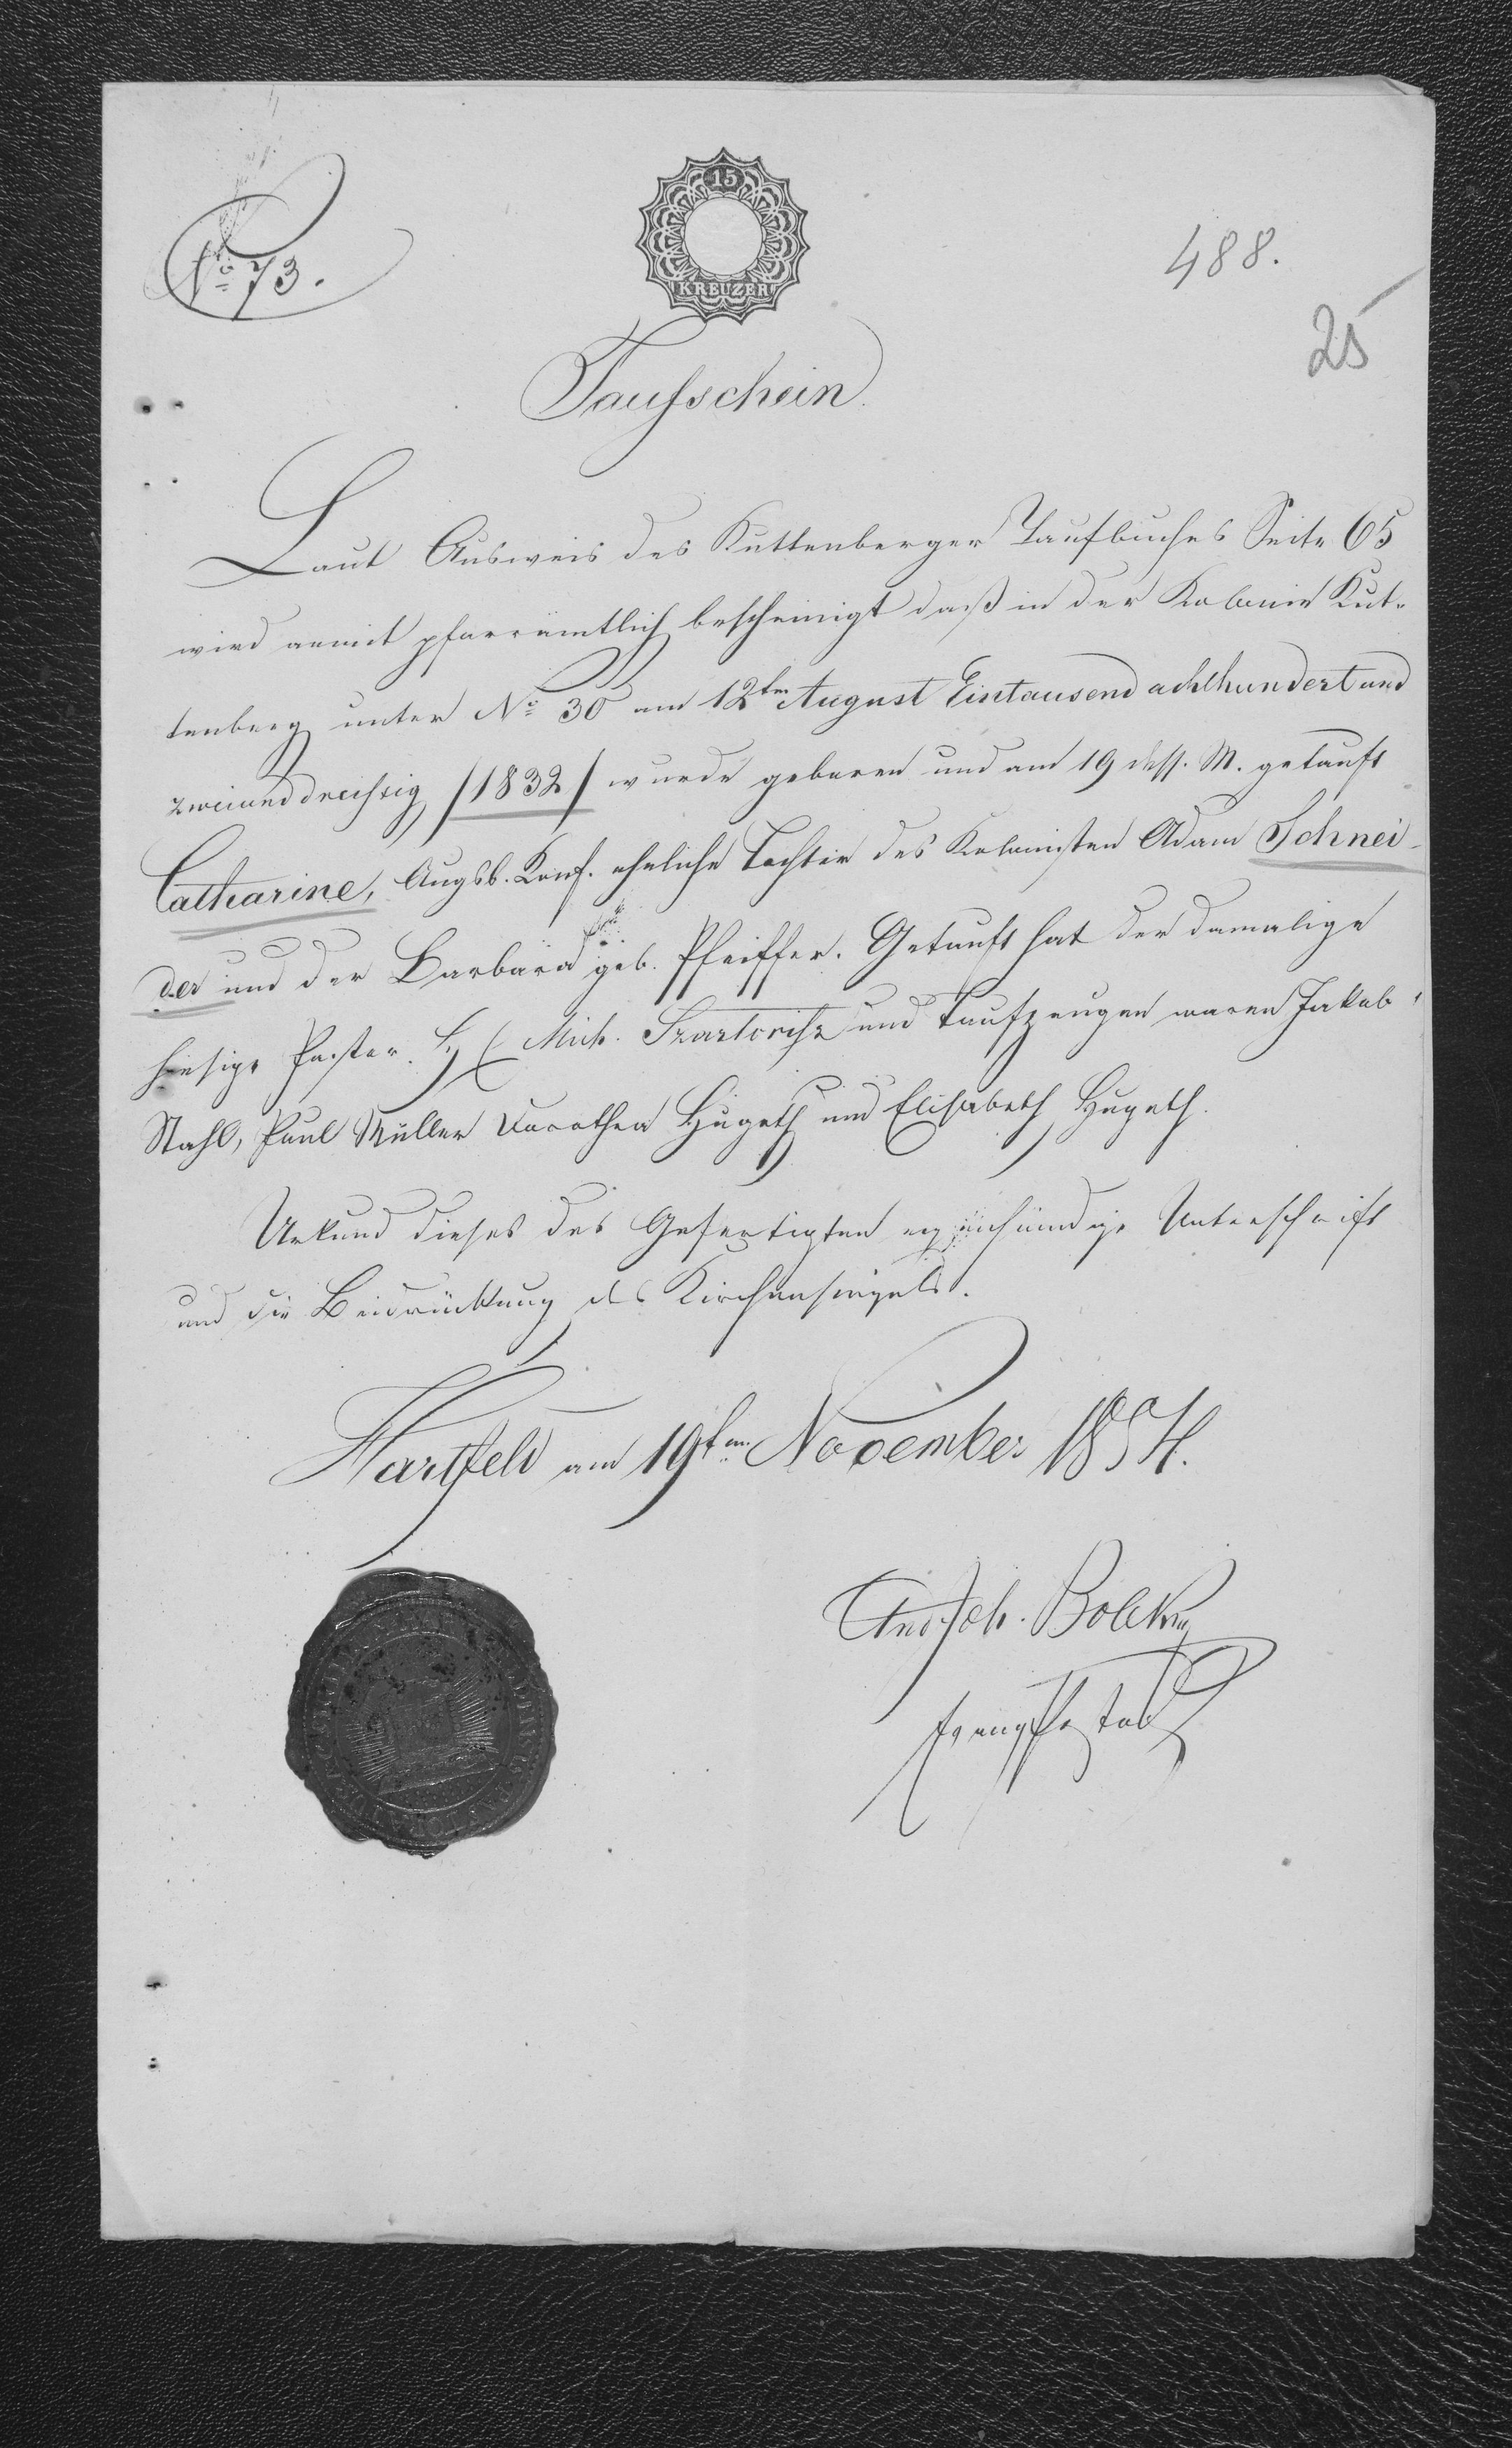 No 73.
15
KREUZER
488.
25
Taufschein.
Laut Ausweis des Kuttenberger Taufbuches Seite 65
wird anmit pfarrämtlich bescheinigt daß in der Kolonie Kut-
tenberg unter No 30 am 12ten August Eintausend achthundert und
zweiunddreißig /1832/ wurde geboren und am 19 dess. M. getauft
Catharine, Augsb. Konf. eheliche Tochter des Kolonisten Adam Schnei-
der und der Barbara geb. Pfeiffer. Getauft hat der damalige
hiesige Pastor H. Mich. Szartorisz und Taufzeugen waren Jakob
Stahl, Paul Müller Dorothea Hugeth und Elisabeth Hugeth.
Urkund dieses des Gefertigten eigenhändige Unterschrift
und die Beidrückung des Kirchensiegels.
Hartfeld am 19ten November 1854.
And. Joh. Bolek
evang Pastor